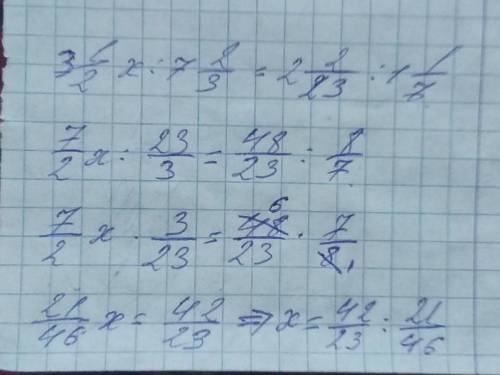 3 1/2 x : 7 2/3 = 2 2/23 : 1 1/7
7/2 x : 23/3 = 48/23 : 8/7
7/2 x · 3/23 = 48/23 6 · 7/8
21/46 x = 42/23 ⇒ x = 42/23 : 21/46